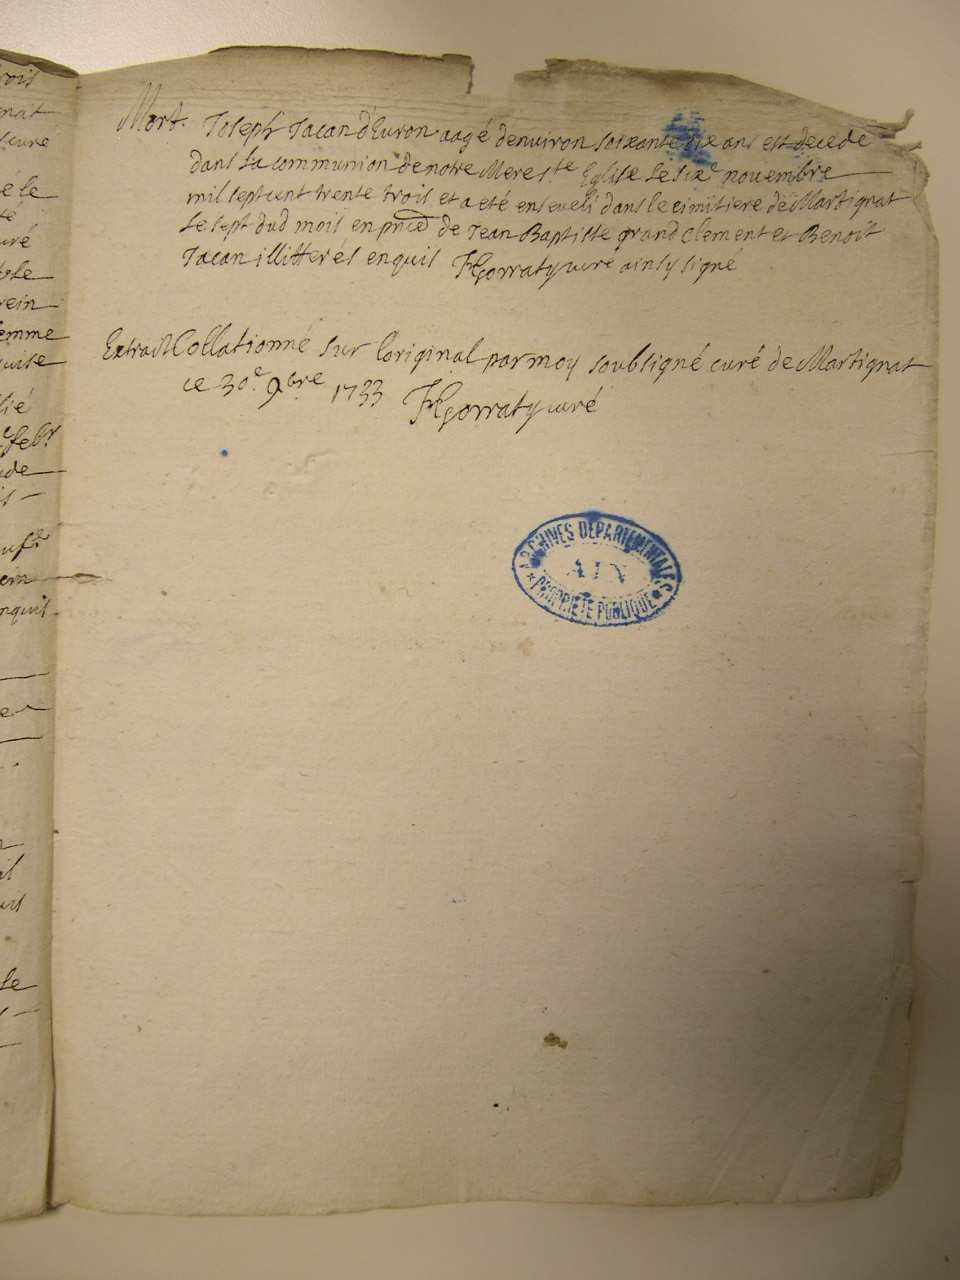 Mort. Joseph Jacan d'Evron aagé denviron soixante dix ans est decede
dans la communion de notre Mere ste Eglise le sixe novembre
mil sept cent trente trois et a eté enseveli dans le cimitiere de Martignat
le sept dud mois en pnce de Jean Baptiste grand Clement et Benoit
Jacan illitterés enquis Gorraty curé ainsy signe
Extrait Collationné sur loriginal par moy soubsigné curé de Martignat
ce 30e 9bre 1733 Gorraty curé
ARCHIVES DEPARTEMENTALES
AIN
* PROPRIETE PUBLIQUE *
rois
nat
curé
é le
té
uré
rein
femme
quise
lié
febr
de
enquis
le